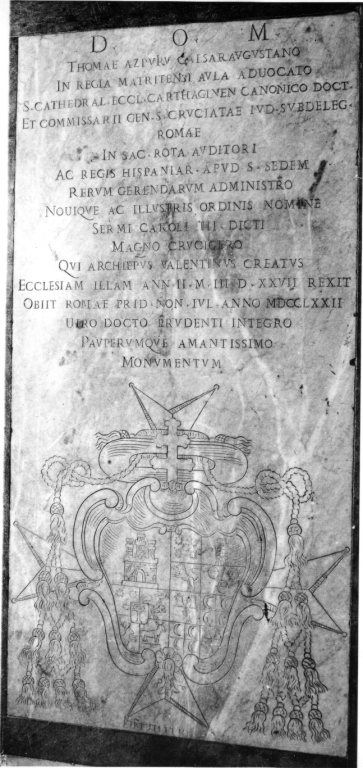 D O M
THOMAE AZPURU CAESARAUGUSTANO
IN REGIA MATRITENSI AULA ADUOCATO
S. CATHEDRAL. ECCL. CARTHAGINEN CANONICO DOCT.
ET COMMISSARII GEN. S. CRUCIATAE IUD. SUBDELEG.
ROMAE
IN SAC. ROTA AUDITORI
AC REGIS HISPANIAR. APUD S. SEDEM
RERUM GERENDARUM ADMINISTRO
NOUIQUE AC ILLUSTRIS ORDINIS NOMINE
SERMI CAROLI III DICTI
MAGNO CRUCIGERO
QUI ARCHIEPUS VALENTINUS CREATUS
ECCLESIAM ILLAM ANN. II. M. III. D. XXVIJ REXIT
OBIIT ROMAE PRID. NON. IUL. ANNO MDCCLXXII
UIRO DOCTO PRUDENTI INTEGRO
PAUPERUMQUE AMANTISSIMO
MONUMENTUM